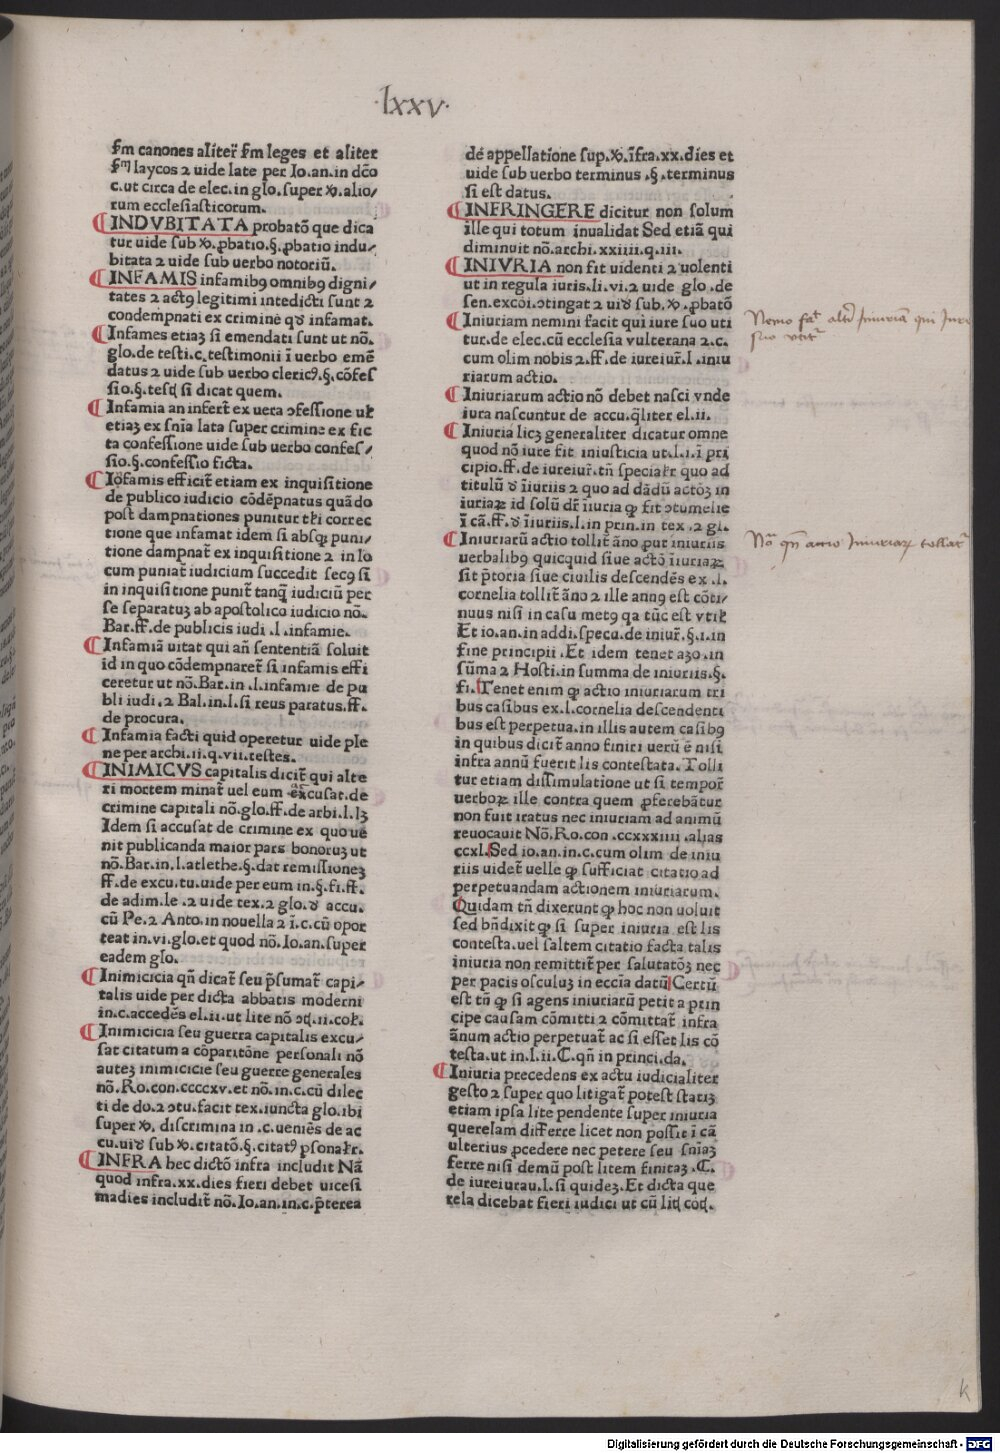 ·lxxv·
s̄m canones aliter̄ s̄m leges et aliter
laycos ⁊ uide late per Io.an.in dc̄o
c.ut circa de elec.in glo.super .alio/
rum ecclesiasticorum.
INDVBITATA probatō que dica
tur uide sub .ꝓbatio.§.ꝓbatio indu/
bitata ⁊ uide sub uerbo notoriū.
INFAMIS infamibꝯ omnibꝯ digni/
tates ⁊ actꝯ legitimi intedicti sunt ⁊
condempnati ex crimine infamat.
Infames etiaꝫ si emendati sunt ut nō.
glo.de testi.c.testimonii ī uerbo emē
datus ⁊ uide sub uerbo clericꝯ.§.cōfes
sio.§. si dicat quem.
Infamia an infert̄ ex uera ɔfessione uł
etiaꝫ ex sn̄ia lata super crimine ex fic
ta confessione uide sub uerbo confes/
sio.§.confessio ficta.
efficit̄ etiam ex inquisitione
de publico iudicio cōdēpnatus quādo
post dampnationes punitur correc
tione que infamat idem si absqꝫ puni/
tione dampnat̄ ex inquisitione ⁊ in lo
cum puniat̄ iudicium succedit secꝯ sī
in inquisitione punit̄ tanqꝫ iudiciū per
se separatuꝫ ab apostolico iudicio nō.
Bar.ff.de publicis iudi .l.infamie.
Infamiā uitat qui an̄ sententiā soluit
id in quo cōdempnaret̄ si infamis effi
ceretur ut nō.Bar.in .l.infamie de pu
bli iudi.⁊ Bal.in.l.si reus paratus.ff.
de procura.
Infamia facti quid operetur uide ple
ne per archi.ii.q.vii.testes.
INIMICVS capitalis dicit̄ qui alte
ri mortem minat̄ uel eum excusat.de
crimine capitali nō.glo.ff.de arbi.l.lꝫ
Idem si accusat de crimine ex quo ue
nit publicanda maior pars bonoruꝫ ut
nō.Bar.in.l.atlethe.§.dat remissioneꝫ
ff.de excu.tu.uide per eum in.§.fi.ff.
de adim.le .⁊ uide tex.⁊ glo. accu.
cū Pe.⁊ Anto.in nouella ⁊ ī.c.cū opor
teat in.vi.glo.et quod nō.Io.an.super
eadem glo.
Inimicicia qn̄ dicat̄ seu p̄sumat̄ capi/
talis uide per dicta abbatis moderni
in.c.accedēs el.ii.ut lite nō ɔt̄.ii.coł.
Inimicicia seu guerra capitalis excu/
sat citatum a cōparitōne personali nō
auteꝫ inimicicie seu guerre generales
nō.Ro.con.ccccxv.et nō.in.c.cū dilec
ti de do.⁊ ɔtu.facit tex.iuncta glo.ibi
super . discrimina in .c.ueniēs de ac
cu. sub .citatō.§.citatꝯ
INFRA hec dictō infra includit Nā
quod infra.xx.dies fieri debet uicesi
madies includit̄ nō.Io.an.in.c.p̄terea
de appellatione sup..īfra.xx.dies et
uide sub uerbo terminus .§.terminus
si est datus.
INFRINGERE dicitur non solum
ille qui totum inualidat Sed etiā qui
diminuit nō.archi.xxiiii.q.iii.
INIVRIA non fit uidenti ⁊ uolenti
ut in regula iuris.li.vi.⁊ uide glo .de
sen.excōi.ɔtingat ⁊ sub. .ꝓbatō
Iniuriam nemini facit qui iure suo uti
tur.de elec.cū ecclesia vulterana ⁊.c.
cum olim nobis ⁊.ff.de iureiur̄.l.iniu
riarum actio.
Iniuriarum actio nō debet nasci vnde
iura nascuntur de accu.qͥliter el.ii.
Iniuria licꝫ generaliter dicatur omne
quod nō iure fit iniusticia ut.l.i.ī pri
cipio.ff.de iureiur̄.tn̄ specialr̄ quo ad
titulū iniuriis ⁊ quo ad dādū actōꝫ in
iuriaꝝ id solū dr̄ īiuria qꝫ fit ɔtumelie
ī cā.ff. iniuriis.l.in prin.in tex .⁊ gl.
Iniuriarū actio tollit̄ āno ꝓut iniuriis
uerbalibꝯ quicquid siue actō īiuriaꝝ
sit p̄toria siue ciuilis descendēs ex .l.
cornelia tollit̄ āno ⁊ ille annꝯ est cōti/
nuus nisi in casu metꝯ qa tūc est vtił
Et io.an.in addi.specu.de iniur̄.§.i.in
fine principii .Et idem tenet aꝫo.in
sūma ⁊ Hosti.in summa de iniuriis.§.
fi.Tenet enim qꝫ actio iniuriarum tri
bus casibus ex.l.cornelia descendenti
bus est perpetua.in illis autem casibꝯ
in quibus dicit̄ anno finiri uerū ē nisi
infra annū fuerit lis contestata.Tolli
tur etiam dissimulatione ut si tempor̄
uerboꝝ ille contra quem ꝓferebātur
non fuit iratus nec iniuriam ad animū
reuocauit Nō.Ro.con .ccxxxiiii .alias
ccxl.Sed io.an.in.c.cum olim de iniu
riis uidet̄ uelle qꝫ sufficiat citatio ad
perpetuandam actionem iniuriarum.
Quidam tn̄ dixerunt qꝫ hoc non uoluit
sed bn̄dixit qꝫ si super iniuria est lis
contesta.uel saltem citatio facta talis
iniuria non remittit̄ per salutatōꝫ nec
per pacis osculuꝫ in ecc̄ia datū Certū
est tn̄ qꝫ si agens iniuriarū petit a prin
cipe causam cōmitti ⁊ cōmittat̄ infra
ānum actio perpetuat̄ ac si esset lis cō
testa.ut in.l.ii.C.qn̄ in princi.da.
Iniuria precedens ex actu iudicialiter
gesto ⁊ super quo litigat̄ potest statiꝫ
etiam ipsa lite pendente super iniuria
querelam differre licet non possit ī cā
ulterius ꝓcedere nec petere seu sn̄iaꝫ
ferre nisi demū post litem finitaꝫ .C.
de iureiurau.l.si quideꝫ.Et dicta que
rela dicebat fieri iudici ut cū
Nemo iniuriā qui Jure
suo vtit̄
Nō qn̄ actio Iniuriaꝝ tollat̄
k
Digitalisierung gefördert durch die Deutsche Forschungsgemeinschaft - DFG